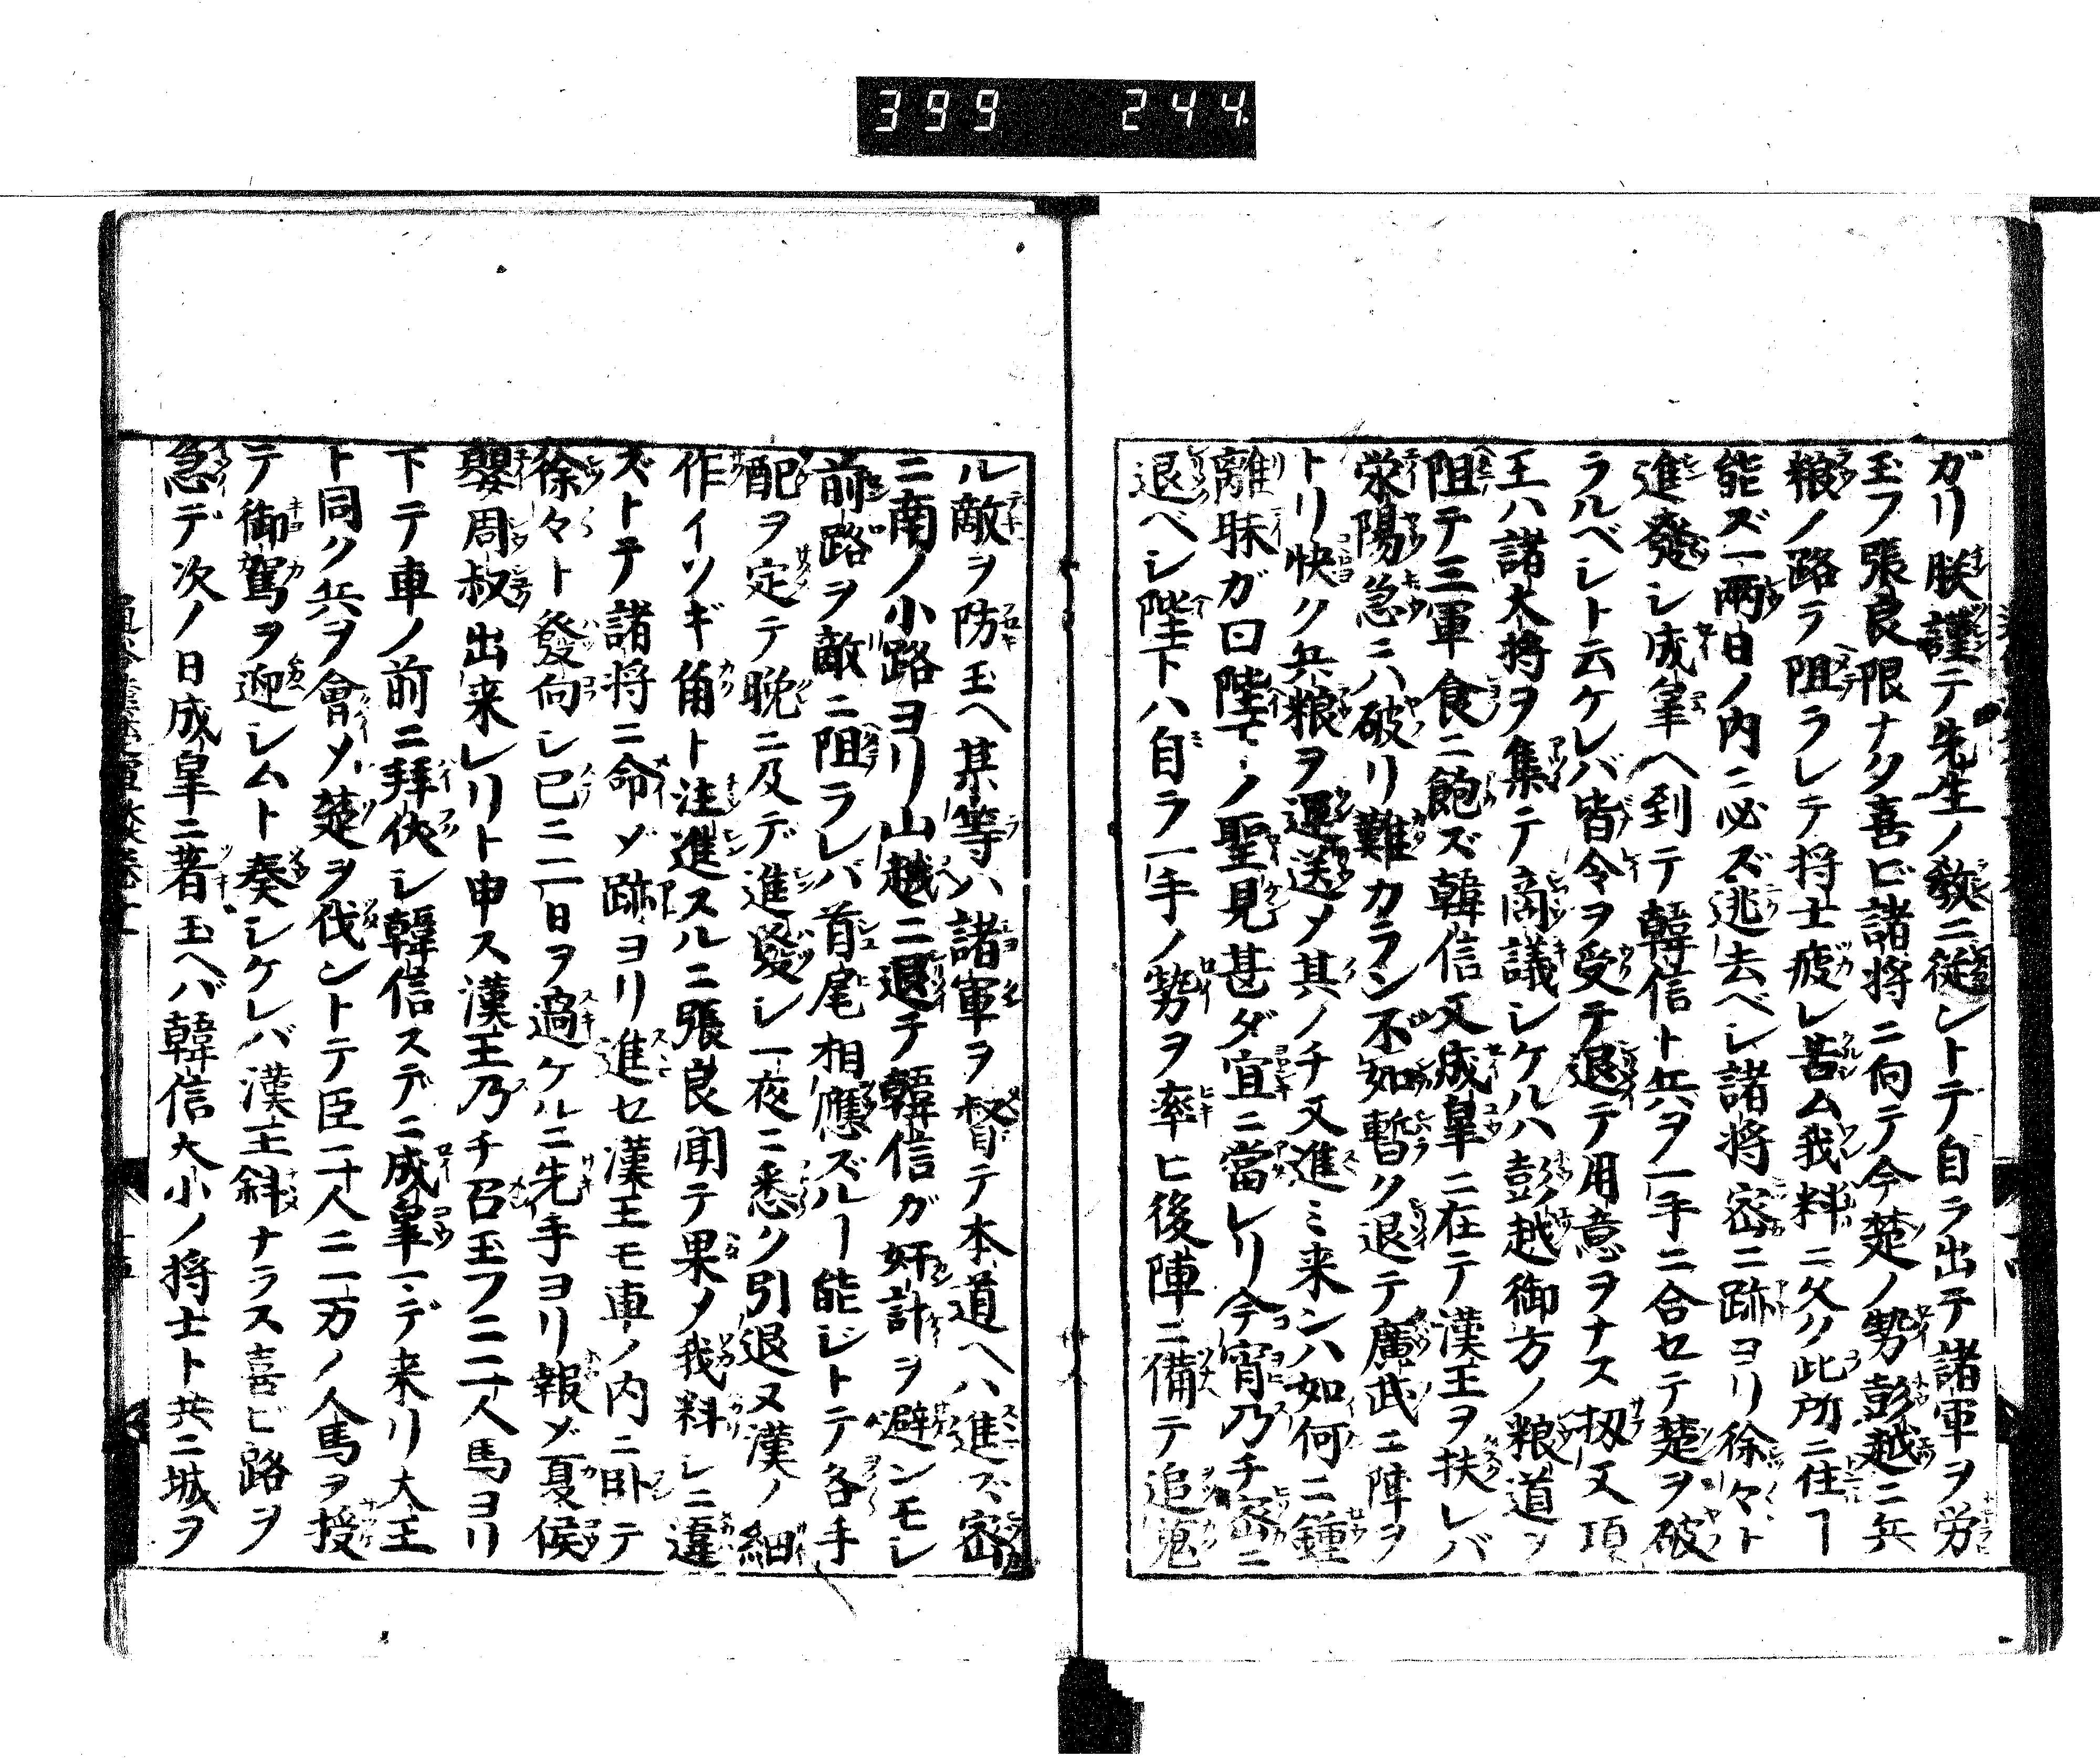 399 244
ガリ朕謹テ先生ノ教ニ従ントテ自ラ出テ諸軍ヲ労
玉フ張良限ナク喜ビ諸将ニ向テ今楚ノ勢彭越ニ兵
粮ノ路ヲ阻ラレテ将士疲レ苦ム我料ニ久ク此所ニ住ヿ
能ズ一両日ノ内ニ必ズ逃去ベシ諸将密ニ跡ヨリ徐々ト
進發シ成皐ヘ到テ韓信ト兵ヲ一手ニ合セテ楚ヲ破
ラルベシト云ケレバ皆令ヲ受テ退テ用意ヲナス扨又項
王ハ諸大将ヲ集テ商議シケルハ彭越御方ノ粮道ヲ
阻テ三軍食ニ飽ズ韓信又成皐ニ在テ漢王ヲ扶レバ
栄陽急ニハ破リ難カラン不如暫ク退テ廣武ニ陣ヲ
トリ快ク兵粮ヲ運送メ其ノチ又進ミ来ンハ如何ニ鍾
離昧ガ曰陛下ノ聖見甚ダ宜ニ當レリ今宵乃チ密ニ
退ベシ陛下ハ自ラ一手ノ勢ヲ率ヒ後陣ニ備テ追
ル敵ヲ防玉ヘ某等ハ諸軍ヲ督テ本道ヘハ進ズ密
ニ南ノ小路ヨリ山越ニ退テ韓信ガ奸計ヲ避ンモシ
前路ヲ敵ニ阻ラレバ首尾相應ズルヿ能ジトテ各手
配ヲ定テ晩ニ及デ進發シ一夜ニ悉ク引退ヌ漢ノ細
作イソギ角ト注進スルニ張良聞テ果メ我料シニ違
ズトテ諸将ニ命ジ跡ヨリ進セ漢王モ車ノ内ニ卧テ
徐々ト發向シ已ニ二日ヲ過ケルニ先手ヨリ報ジ夏侯
嬰周叔出来レリト申ス漢王乃チ召玉フニ二人馬ヨリ
下テ車ノ前ニ拜伏シ韓信スデニ成皐マデ来リ大王
ト同ク兵ヲ會メ楚ヲ伐ントテ臣二十人ニ一万ノ人馬ヲ授
テ御駕ヲ迎シムト奏シケレバ漢王斜ナラス喜ビ路ヲ
急デ次ノ日成皐ニ着玉ヘバ韓信大小ノ将士ト共ニ城ヲ